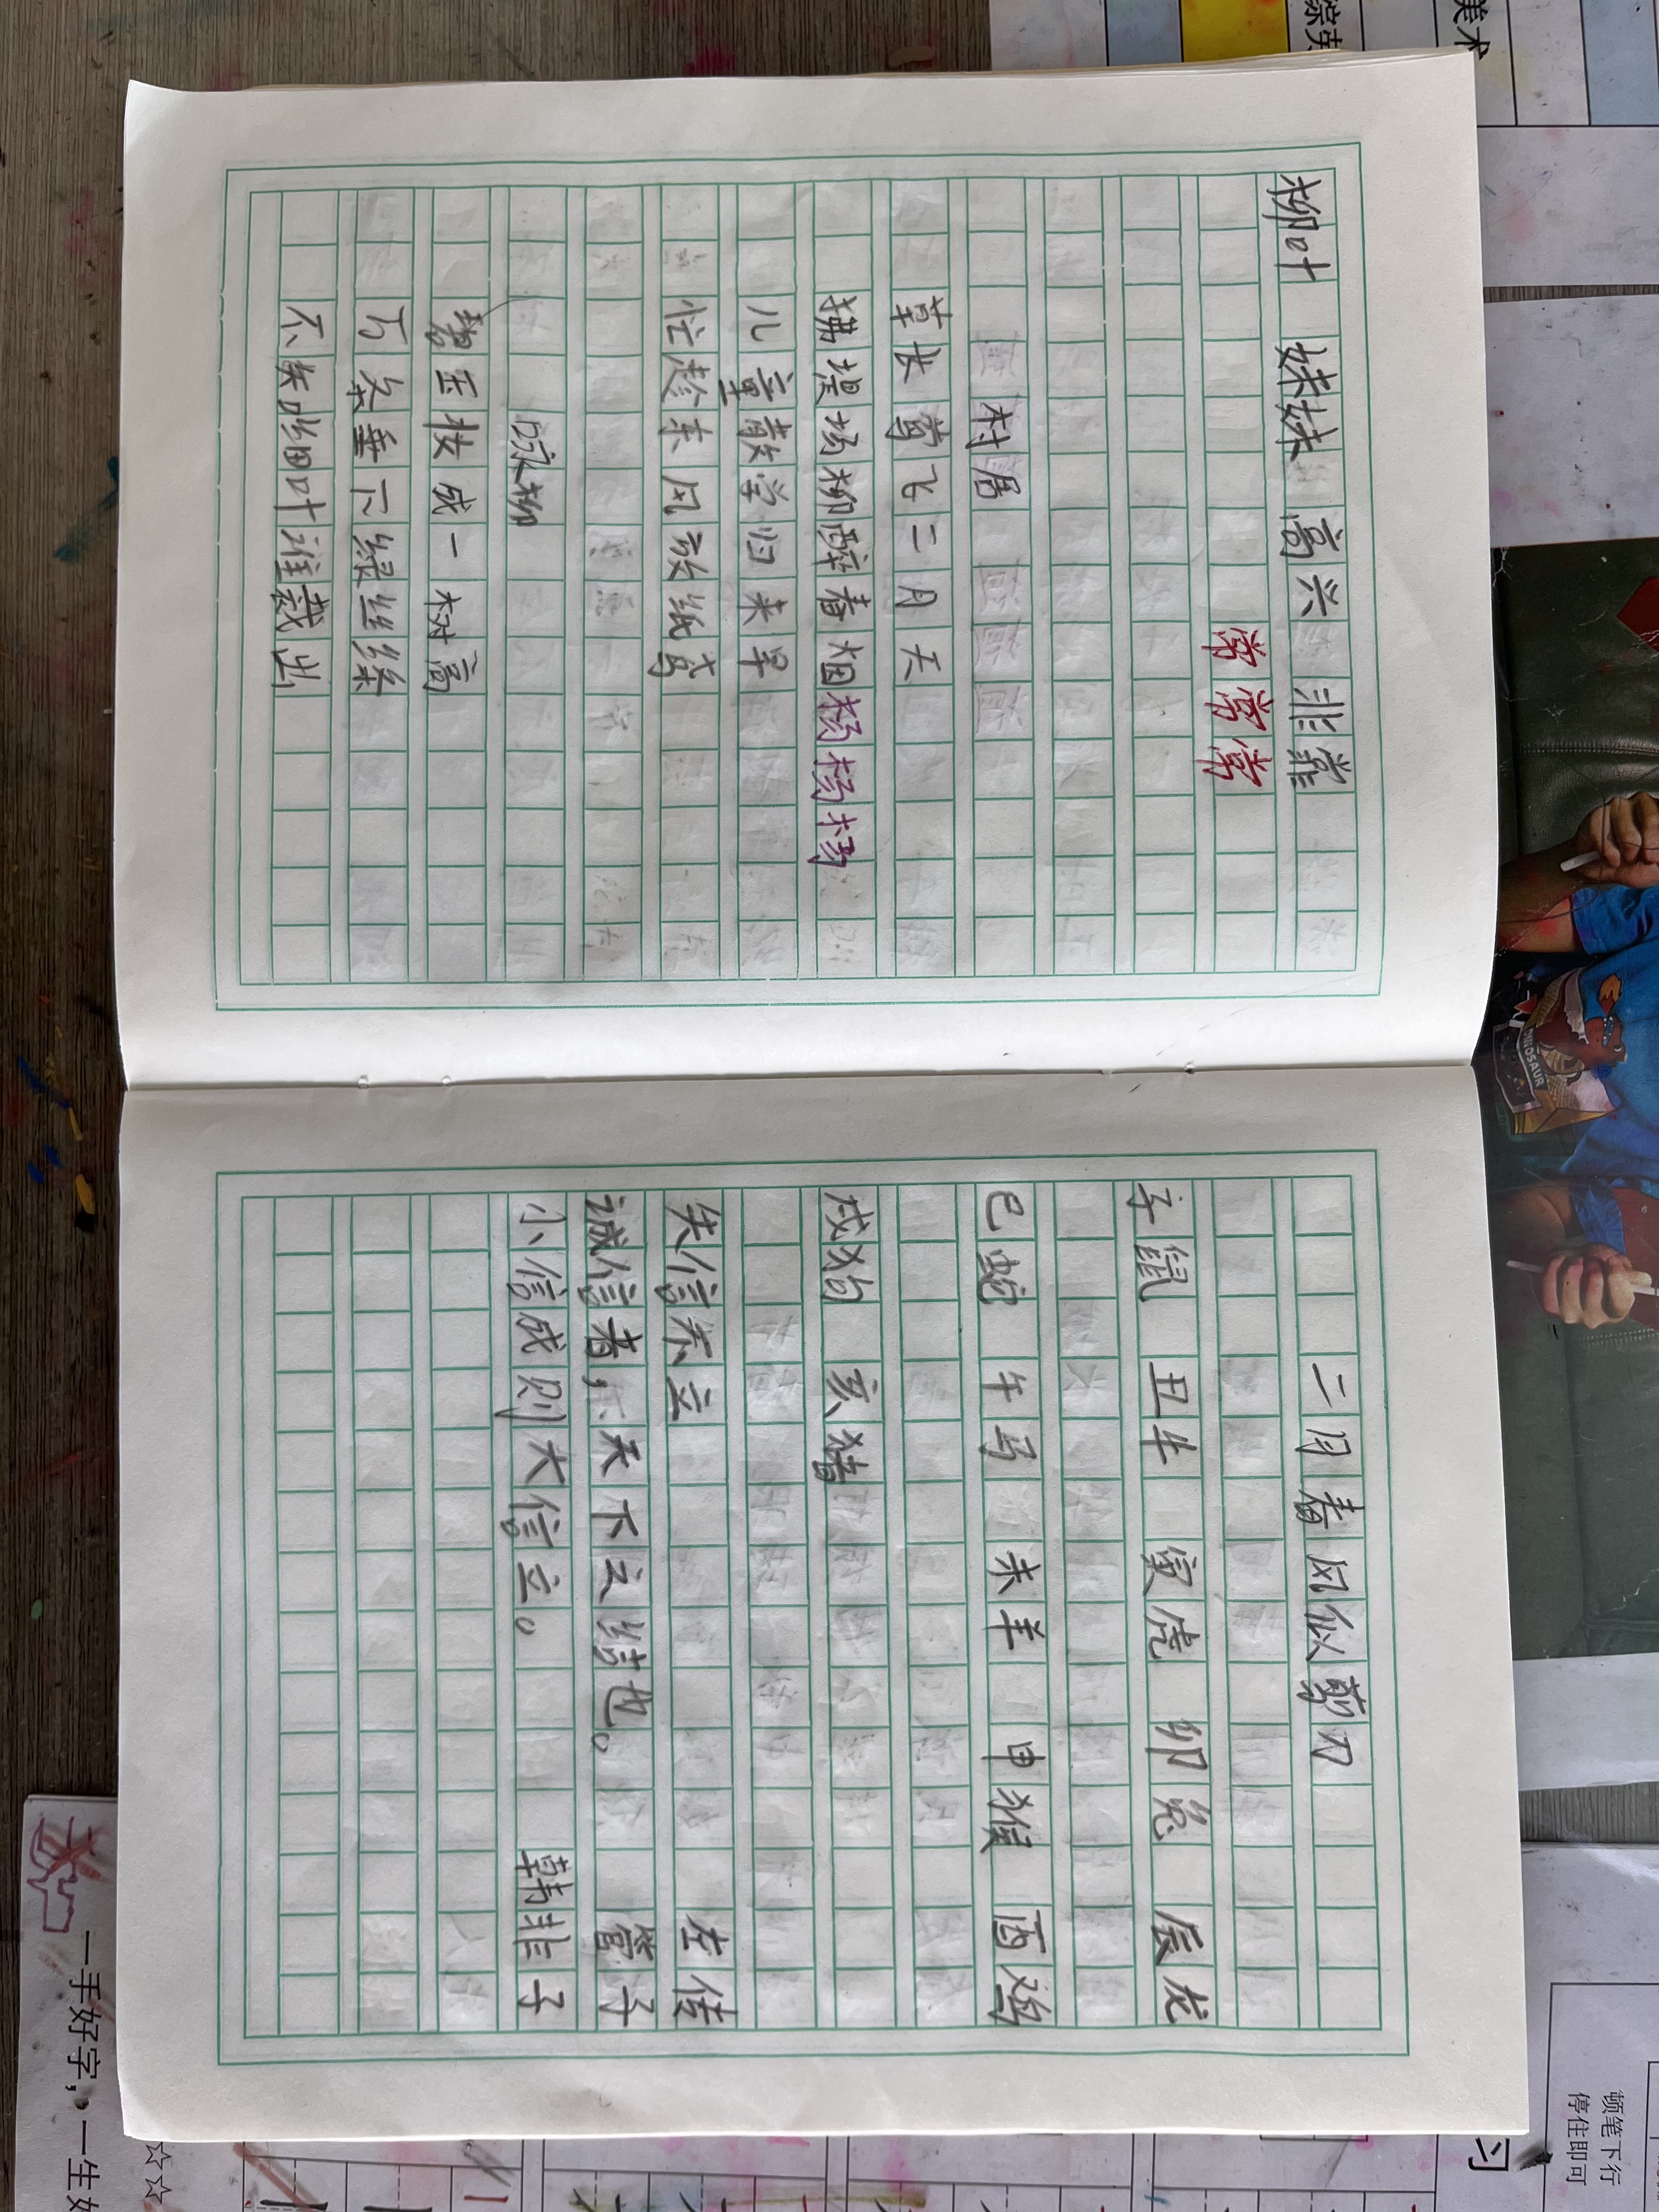 美术
柳叶 妹妹 高兴 非
常常常
村居
草长莺飞二月天
拂堤场柳醉春烟杨杨杨
儿童散学归来早
忙趁东风放纸鸢
咏柳
碧玉妆成一树高
万条垂下绿丝绦
不知细叶谁裁出
二月春风似剪刀
子鼠 丑牛 寅虎 卯兔 辰龙
巳蛇 午马 未羊 申猴 酉鸡
戌狗 亥猪
失信不立 左传
诚信者，天下之结也。 管子
小信成则大信立。 韩非子
DINOSAUR
顿笔下行
停住即可
习
一手好字，一生好